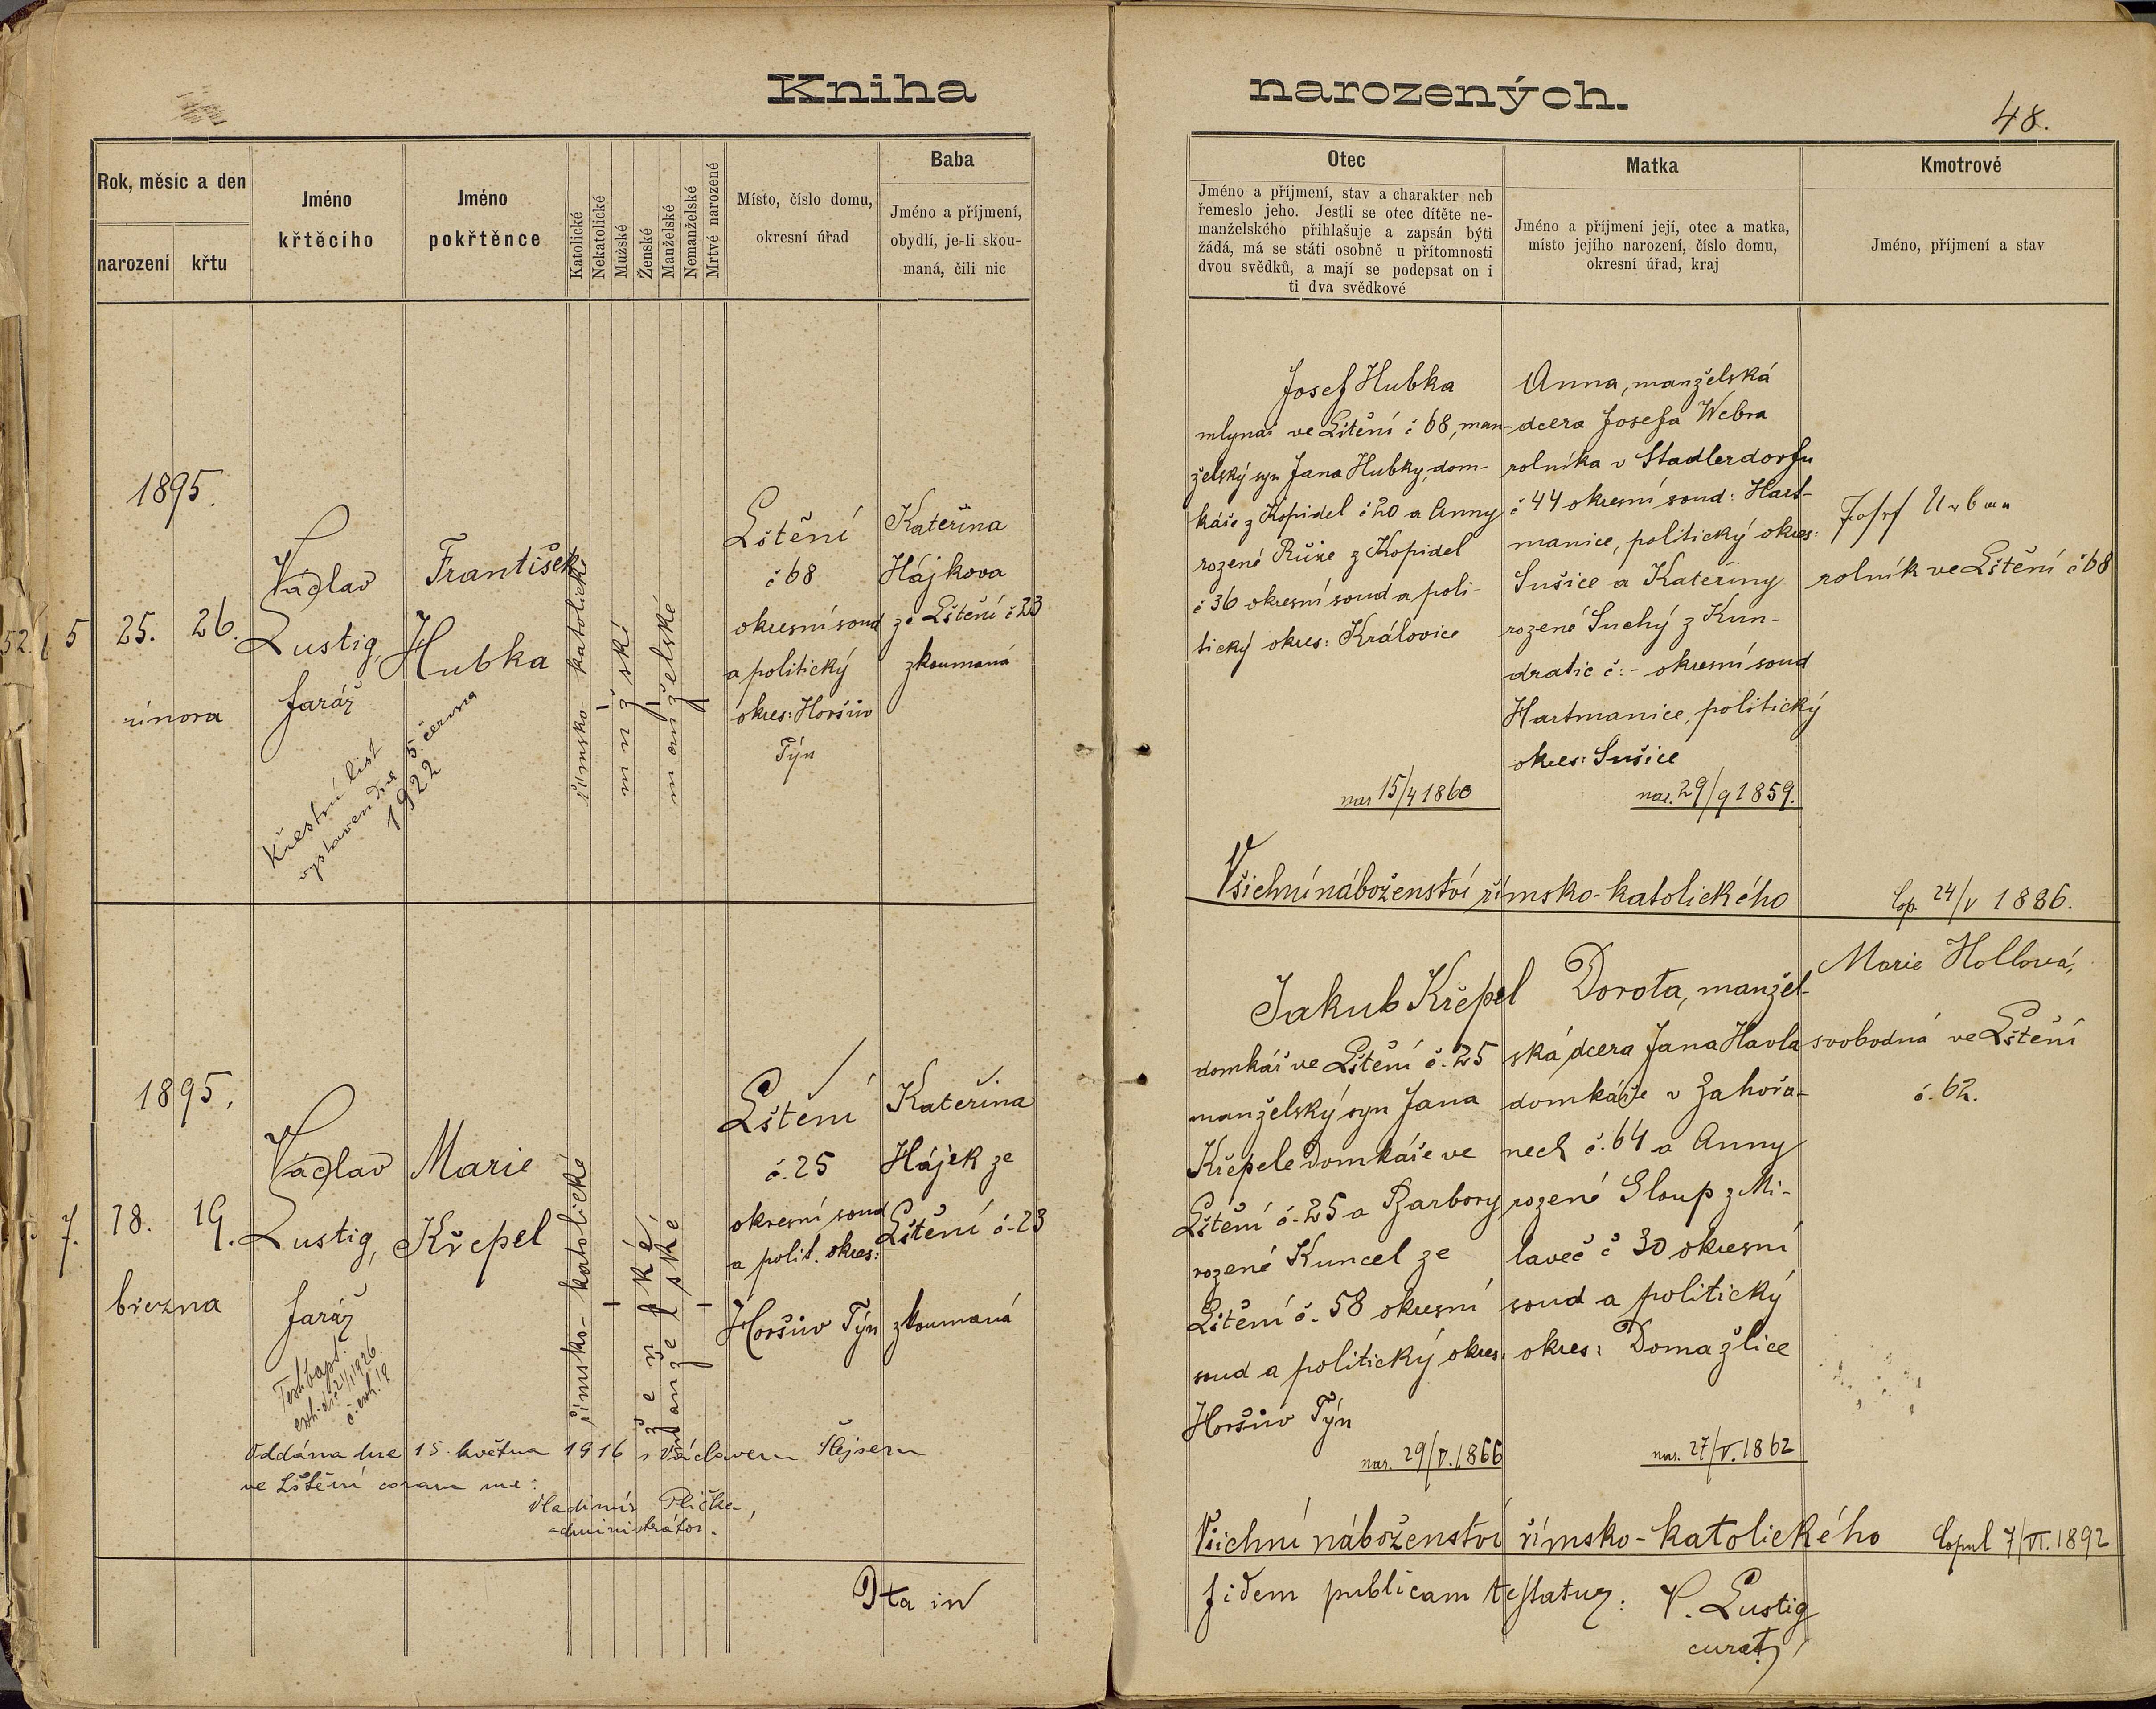 Kniha narozených.
48.
Rok, měsíc a den
narození
křtu
Jméno
křtěcího
Jméno
pokřtěnce
Katolické
Nekatolické
Mužské
Ženské
Manželské
Nemanželské
Mrtvé narozené
Místo, číslo domu,
okresní úřad
Baba
Jméno a příjmení,
obydlí, je-li skou-
maná, čili nic
Otec
Jméno a příjmení, stav a charakter neb
řemeslo jeho. Jestli se otec dítěte ne-
manželského přihlašuje a zapsán býti
žádá, má se státi osobně u přítomnosti
dvou svědků, a mají se podepsat on i
ti dva svědkové
Matka
Jméno a příjmení její, otec a matka,
místo jejího narození, číslo domu,
okresní úřad, kraj
Kmotrové
Jméno, příjmení a stav
5
1895.
25.
26.
února
Václav
Lustig,
farář
František
Hubka
římsko-katolické
mužské
manželské
Lštění
č 68
okresní soud
a politický
okres: Horšův
Týn
Kateřina
Hájkova
ze Lštění č 23
zkoumaná
Křestní list
vystaven dne 5. června
1922
Josef Hubka
mlynář ve Lštění č 68, man-
želský syn Jana Hubky, dom-
káře z Kopidel č 20 a Anny
rozené Růže z Kopidel
č 36 okresní soud a poli-
tický okres: Královice
nar 15/4 1860
Anna, manželská
dcera Josefa Webra
rolníka v Stadlerdorfu
č 44 okresní soud: Hart-
manice, politický okres:
Sušice a Kateřiny
rozené Suchý z Kun-
dratic č: - okresní soud
Hartmanice, politický
okres: Sušice
nar. 29/9 1859.
Josef Urban
rolník ve Lštění č 68
Všichni náboženství římsko-katolického
Cop. 24/V 1886.
7.
1895.
18.
19.
března
Václav
Lustig,
farář
Marie
Křepel
římsko-katolické
ženské
manželské
Lštění
č. 25
okresní soud
a polit. okres:
Horšův Týn
Kateřina
Hájek ze
Lštění č. 23
zkoumaná
Test. bapt.
exh. 1926.
č. exh. 19
Oddána dne 15. května 1916 s Václavem Šlejsem
ve Lštění coram me:
Vladimír Plička,
administrátor.
Jakub Křepel
domkář ve Lštění č. 25
manželský syn Jana
Křepele domkáře ve
Lštění č. 25 a Barbory
rozené Kuncel ze
Lštění č. 58 okresní
soud a politický okres:
Horšův Týn
nar. 29/V. 1866
Dorota, manžel-
ská dcera Jana Havla
domkáře v Zahořa-
nech č. 64 a Anny
rozené Sloup z Mi-
laveč č 30 okresní
soud a politický
okres: Domažlice
nar. 27/V. 1862
Marie Hollová,
svobodná ve Lštění
č. 62.
Všichni náboženství římsko-katolického
Copul 7/VI. 1892
Ita in fidem publicam testatur: V. Lustig
curat.